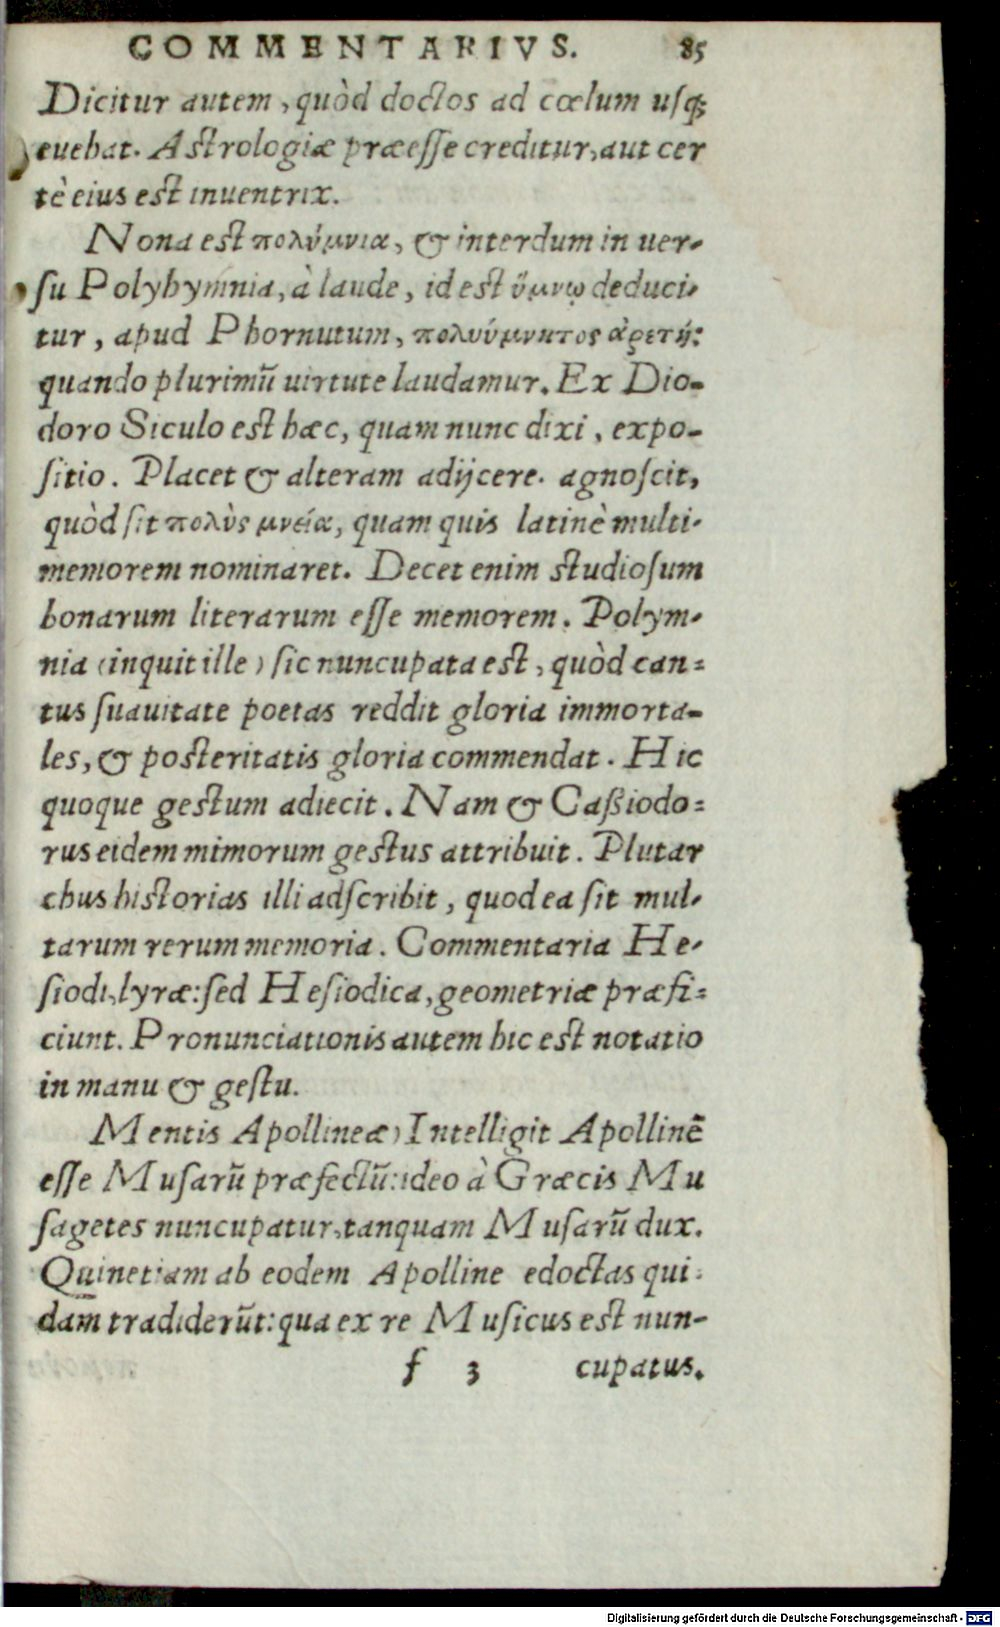 COMMENTARIVS. 85
Dicitur autem, quòd doctos ad cœlum usq;
euehat. Astrologiæ præesse creditur, aut cer
tè eius est inuentrix.
Nona est πολύμνια, & interdum in uer-
su Polyhymnia, à laude, id est ὕμνῳ deduci-
tur, apud Phornutum, πολυύμνητος ἀρετή:
quando plurimū uirtute laudamur. Ex Dio-
doro Siculo est hæc, quam nunc dixi, expo-
sitio. Placet & alteram adijcere. agnoscit,
quòd sit πολὺς μνεία, quam quis latinè multi-
memorem nominaret. Decet enim studiosum
bonarum literarum esse memorem. Polym-
nia (inquit ille) sic nuncupata est, quòd can-
tus suauitate poetas reddit gloria immorta-
les, & posteritatis gloria commendat. Hic
quoque gestum adiecit. Nam & Caßiodo-
rus eidem mimorum gestus attribuit. Plutar
chus historias illi adscribit, quod ea sit mul-
tarum rerum memoria. Commentaria He-
siodi, lyræ: sed Hesiodica, geometriæ præfi-
ciunt. Pronunciationis autem hic est notatio
in manu & gestu.
Mentis Apollineæ) Intelligit Apollinē
esse Musarū præfectū: ideo à Græcis Mu
sagetes nuncupatur, tanquam Musarū dux.
Quinetiam ab eodem Apolline edoctas qui-
dam tradiderūt: qua ex re Musicus est nun-
f 3 cupatus.
Digitalisierung gefördert durch die Deutsche Forschungsgemeinschaft - DFG